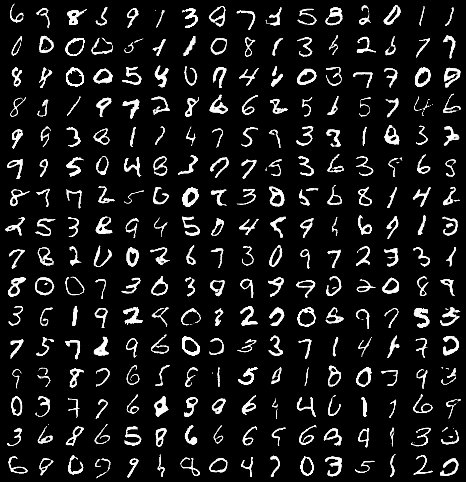 6 9 8 5 9 1 3 0 7 1 5 8 2 0 1 1
0 0 0 0 5 1 1 0 8 1 3 2 6 7 9
8 8 0 0 5 4 0 7 4 6 0 3 7 7 0 0
8 9 1 9 7 2 8 6 6 2 5 1 5 7 4 6
9 9 3 8 1 7 4 7 5 9 3 3 1 8 3 7
9 9 5 0 4 8 3 7 7 5 3 6 3 9 6 9
8 7 7 2 5 0 0 7 3 8 5 6 8 1 4 2
2 5 3 8 9 4 5 0 4 5 9 6 9 1 3
7 8 2 0 0 2 6 7 3 0 9 7 2 3 3 1
8 0 0 7 3 0 3 9 9 9 9 0 2 0 8 9
3 6 1 9 2 9 0 8 2 0 0 8 9 7 5 5
7 5 7 2 9 6 0 0 3 3 7 1 4 1 7 0
9 9 8 7 6 5 8 1 5 0 1 8 0 3 9 3
0 3 7 7 6 8 9 9 6 4 0 1 1 6 9
3 6 8 6 5 8 6 6 6 5 6 9 9 1 3 0
6 9 0 9 9 8 0 4 7 0 3 5 1 2 0